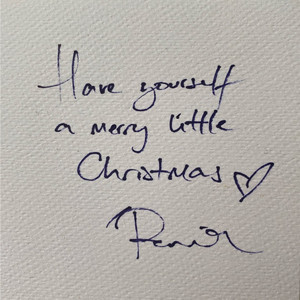 Have yourself
a merry little
Christmas ♡